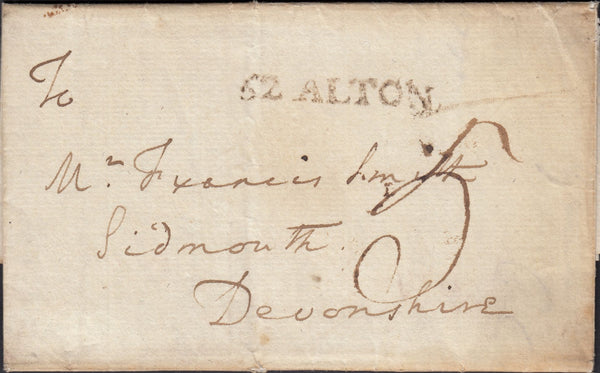 To
52 ALTON
Mr Francis Smith
5
Sidmouth.
Devonshire